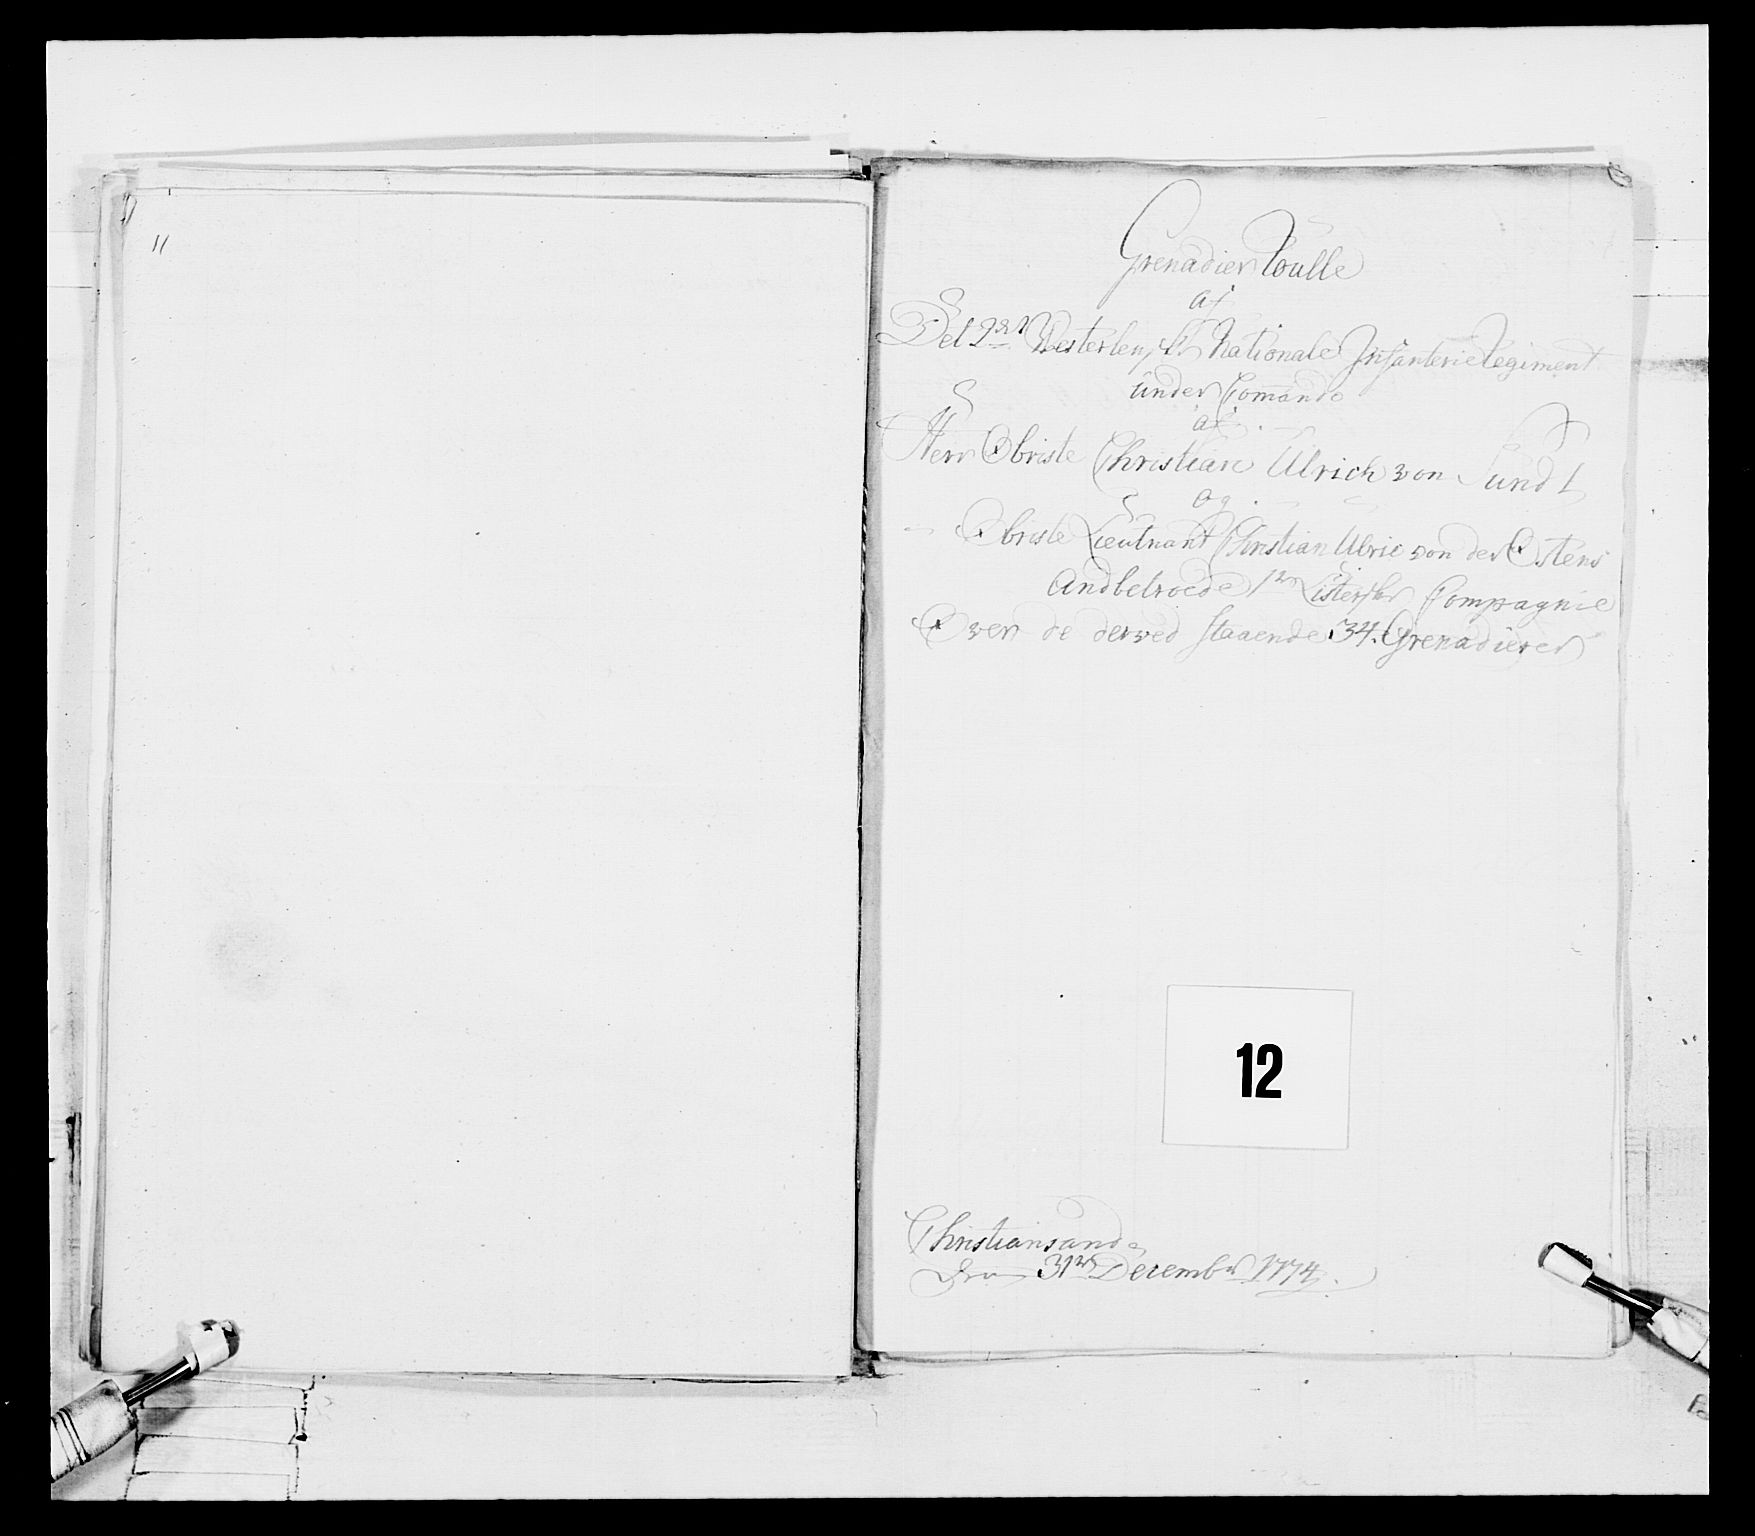 11
Grenadier Roulle
af
Det 2det Westerlenske Nationale Infanterie Regiment
under Comando
af
Herr Obriste Christian Ulrich von Sundt
og
Obriste Lieutnant Christian Ulric von der Ostens
Andbetroede 1te Listerske Compagnie
Over de derved staaende 34. Grenadierer
12
Christiansand
den 31te Decembr 1774.